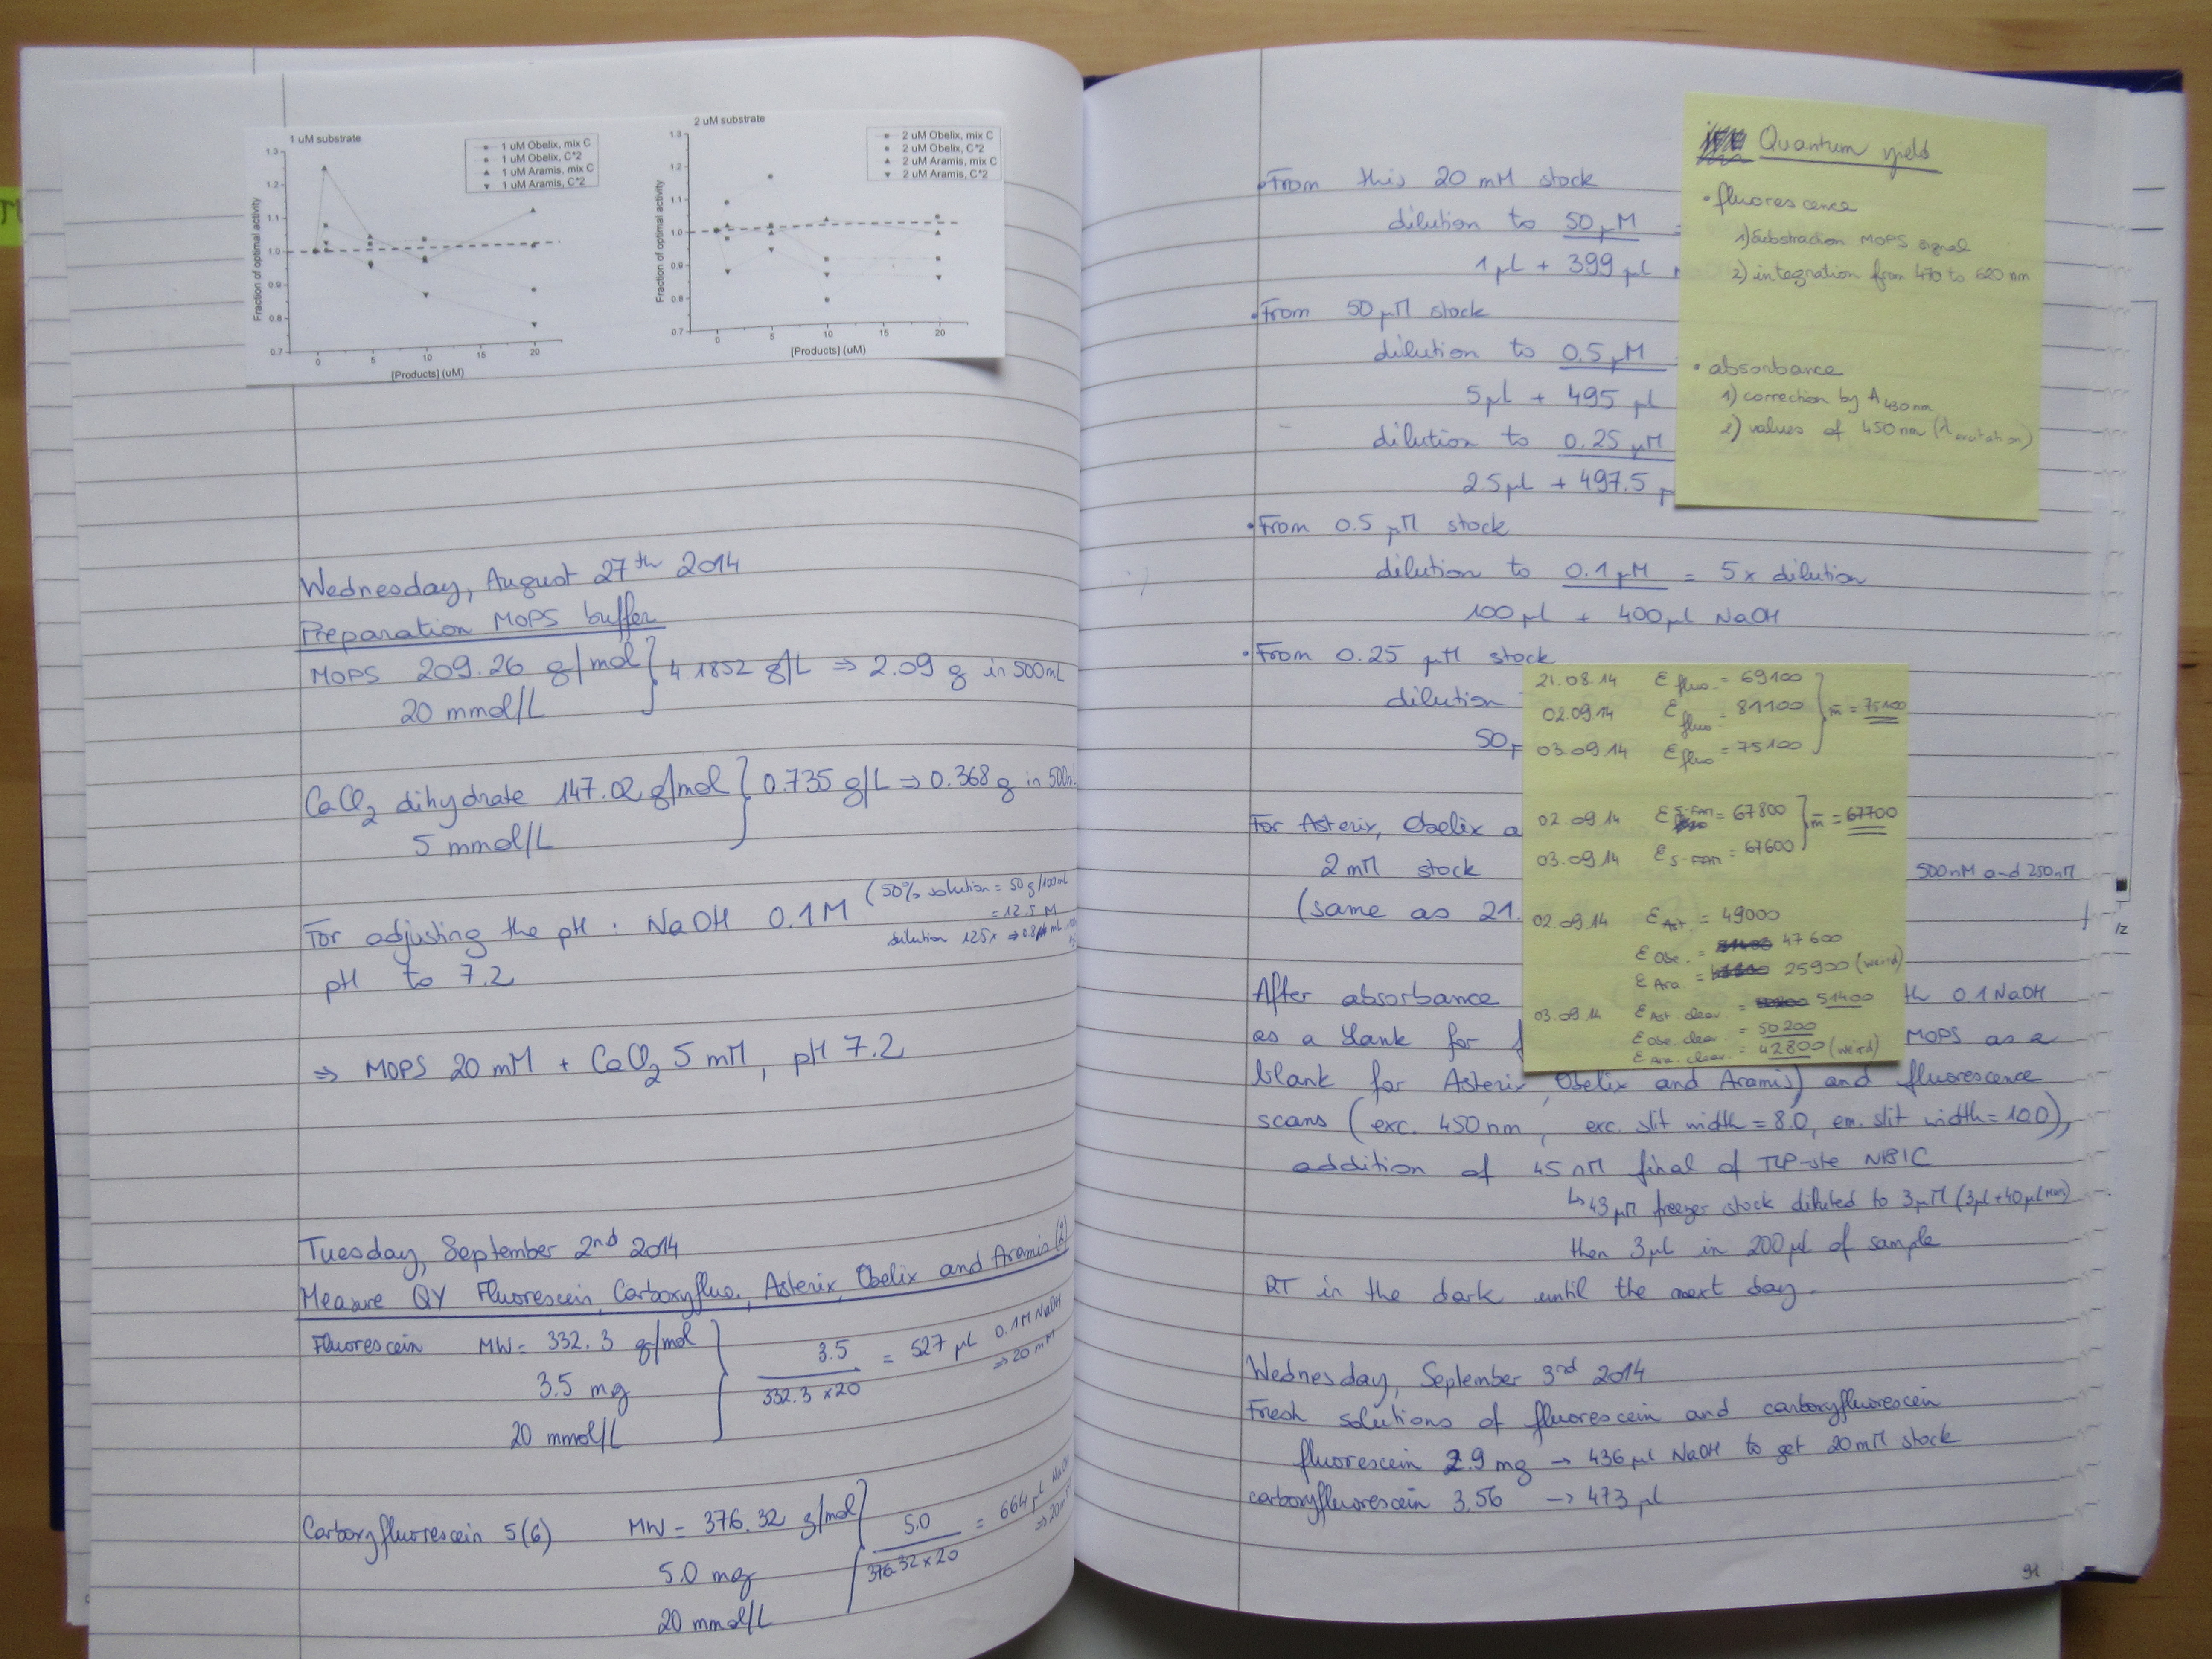 1 uM substrate
1 uM Obelix, mix C
1 uM Obelix, C*2
1 uM Aramis, mix C
1 uM Aramis, C*2
Fraction of optimal activity
1.3
1.2
1.1
1.0
0.9
0.8
0.7
0 5 10 15 20
[Products] (uM)
2 uM substrate
2 uM Obelix, mix C
2 uM Obelix, C*2
2 uM Aramis, mix C
2 uM Aramis, C*2
Fraction of optimal activity
1.3
1.2
1.1
1.0
0.9
0.8
0.7
0 5 10 15 20
[Products] (uM)
Wednesday, August 27th 2014
Preparation MOPS buffer
MOPS 209.26 g/mol } 4.1852 g/L ⇒ 2.09 g in 500mL
20 mmol/L
CaCl2 dihydrate 147.02 g/mol } 0.735 g/L ⇒ 0.368 g in 500m
5 mmol/L
For adjusting the pH : NaOH 0.1M (50% solution = 50g/100mL
= 12.5 M
dilution 125x ⇒ 0.8 mL
pH to 7.2
⇒ MOPS 20 mM + CaCl2 5 mM, pH 7.2
Tuesday, September 2nd 2014
Measure QY Fluorescein, Carboxyfluo., Asterix, Obelix and Aramis (2)
Fluorescein MW = 332.3 g/mol
3.5 mg
20 mmol/L
3.5 / 332.3 x 20 = 527 µL 0.1M NaOH
⇒ 20 mM
Carboxyfluorescein 5(6) MW = 376.32 g/mol
5.0 mg
20 mmol/L
5.0 / 376.32 x 20 = 664 µL NaOH
⇒ 20 mM
• From this 20 mM stock
dilution to 50 µM =
1µL + 399 µL
• From 50 µM stock
dilution to 0.5 µM
5µL + 495 µL
dilution to 0.25 µM
2.5µL + 497.5 µ
• From 0.5 µM stock
dilution to 0.1 µM = 5x dilution
100 µL + 400µL NaOH
• From 0.25 µM stock
dilution
50µ
For Asterix, Obelix a
2 mM stock 500nM and 250nM
(same as 21.
After absorbance th 0.1 NaOH
as a blank for f MOPS as a
blank for Asterix, Obelix and Aramis) and fluorescence
scans (exc. 450 nm, exc. slit width = 8.0, em. slit width = 10.0),
addition of 45 nM final of TLP-ste NBIC
↳ 43 µM freezer stock diluted to 3µM (3µL + 40µL
then 3µL in 200µL of sample
RT in the dark until the next day.
Wednesday, September 3rd 2014
Fresh solutions of fluorescein and carboxyfluorescein
fluorescein 2.9 mg → 436 µL NaOH to get 20mM stock
carboxyfluorescein 3.56 → 473 µL
91
Quantum yield
• fluorescence
1) Substraction MOPS signal
2) integration from 470 to 620 nm
• absorbance
1) correction by A430nm
2) values of 450nm (λexcitation)
21.08.14 ε fluo. = 69100
02.09.14 ε fluo = 81100 } m̄ = 75100
03.09.14 ε fluo = 75100
02.09.14 ε 5-FAM = 67800 } m̄ = 67700
03.09.14 ε 5-FAM = 67600
02.09.14 ε Ast. = 49000
ε Obe. = 47600
ε Ara. = 25900 (weird)
03.09.14 ε Ast. cleav. = 51400
ε Obe. cleav. = 50200
ε Ara. cleav. = 42800 (weird)